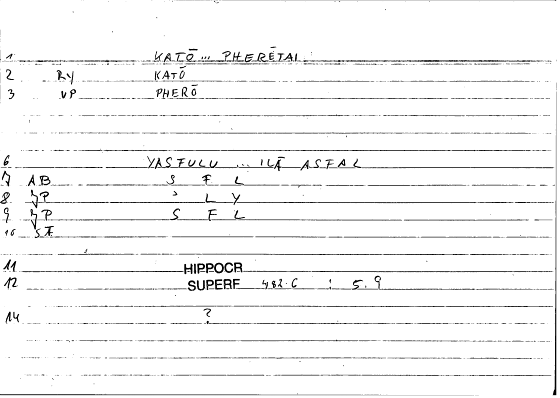 1 KATŌ... PHERĒTAI
2 RY KATŌ
3 VP PHERŌ
6 YASFULU ... ILĀ ASFAL
7 AB S F L
8 JP ʾ L Y
9 JP S F L
10
11 HIPPOCR
12 SUPERF 482.6 : 5.9
14 ?